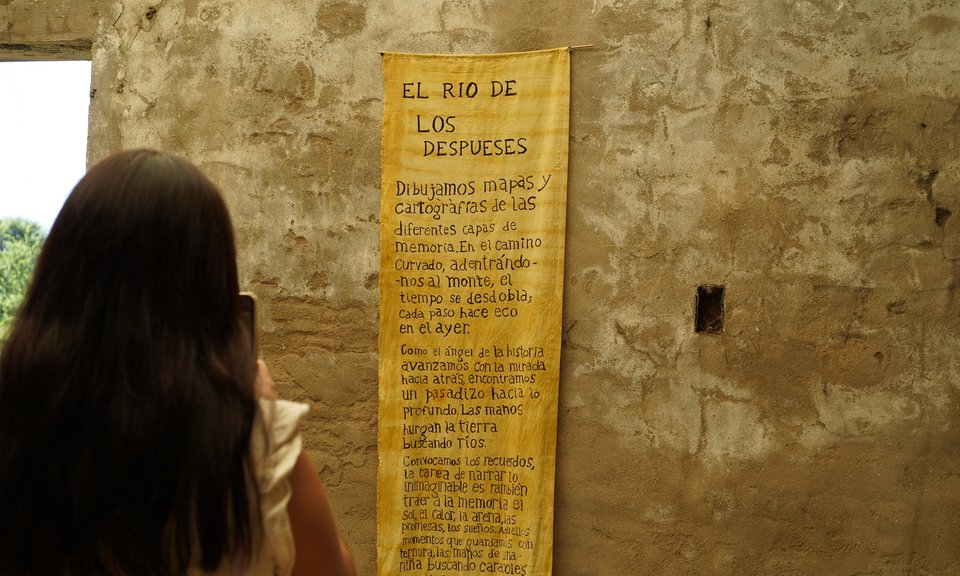 EL RIO DE
LOS
DESPUESES
Dibujamos mapas y
cartografías de las
diferentes capas de
memoria. En el camino
curvado, adentrándo-
-nos al monte, el
tiempo se desdobla;
cada paso hace eco
en el ayer.
Como el ángel de la historia
avanzamos con la mirada
hacia atrás, encontramos
un pasadizo hacia lo
profundo. Las manos
hurgan la tierra
buscando ríos.
Convocamos los recuerdos,
la tarea de narrar lo
inimaginable es también
traer a la memoria el
sol, el calor, la arena, las
promesas, los sueños. Aquellos
momentos que guardamos con
ternura, las manos de una
niña buscando caracoles